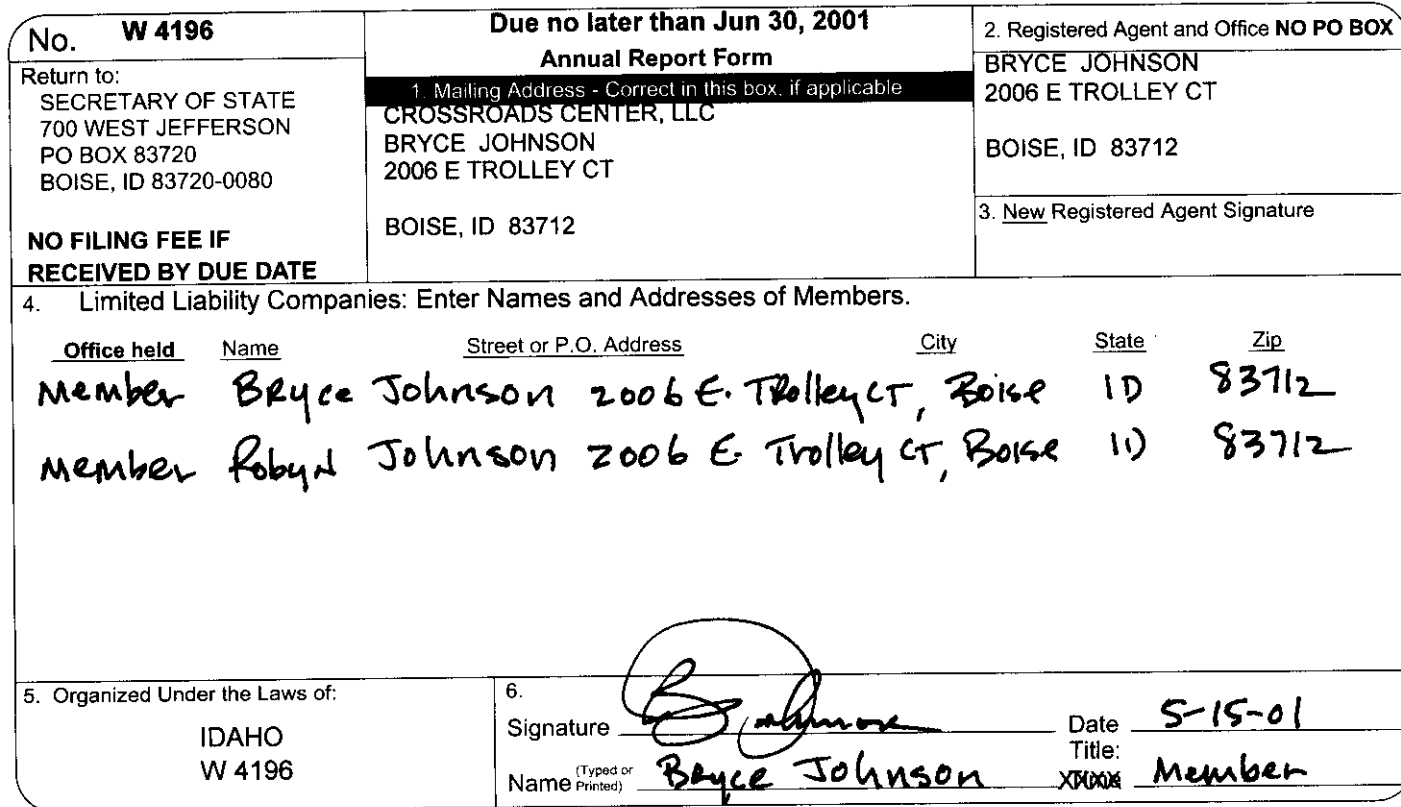 No. W 4196
Return to:
SECRETARY OF STATE
700 WEST JEFFERSON
PO BOX 83720
BOISE, ID 83720-0080
NO FILING FEE IF
RECEIVED BY DUE DATE
Due no later than Jun 30, 2001
Annual Report Form
1. Mailing Address - Correct in this box, if applicable
CROSSROADS CENTER, LLC
BRYCE JOHNSON
2006 E TROLLEY CT
BOISE, ID 83712
2. Registered Agent and Office NO PO BOX
BRYCE JOHNSON
2006 E TROLLEY CT
BOISE, ID 83712
3. New Registered Agent Signature
4. Limited Liability Companies: Enter Names and Addresses of Members.
Office held Name Street or P.O. Address City State Zip
Member Bryce Johnson 2006 E. Trolley CT, Boise ID 83712
Member Robyn Johnson 2006 E. Trolley CT, Boise ID 83712
5. Organized Under the Laws of:
IDAHO
W 4196
6.
Signature B Johnson Date 5-15-01
Name (Typed or Printed) Bryce Johnson Title: Member